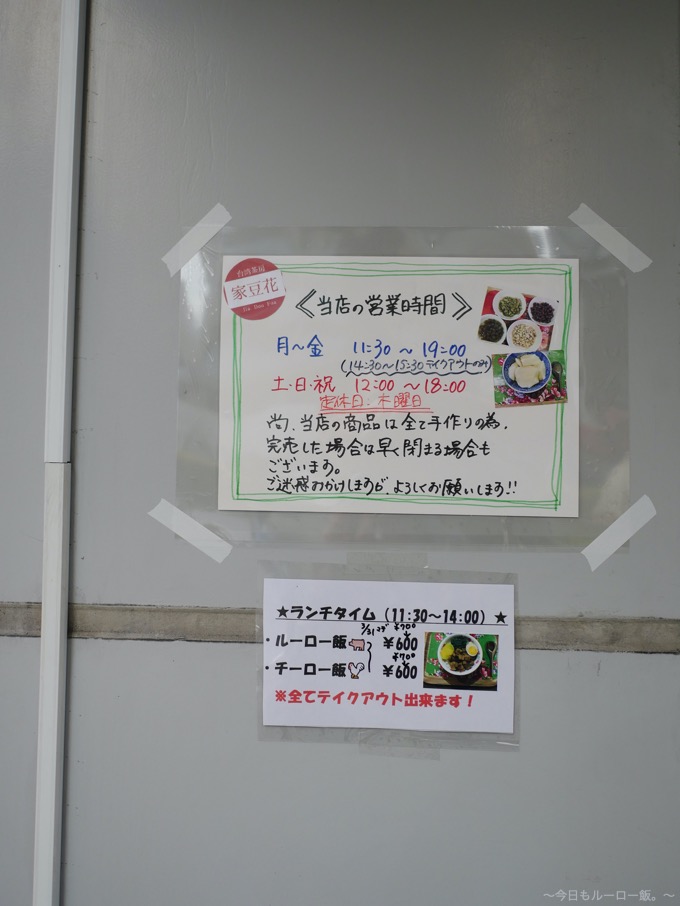 台湾茶房
家豆花
《当店の営業時間》
月～金 11:30 ～ 19:00
(14:30～15:30 テイクアウトのみ)
土・日・祝 12:00 ～ 18:00
定休日:木曜日
尚、当店の商品は全て手作りの為、
完売した場合は早く閉まる場合も
ございます。
ご迷惑おかけしますが、よろしくお願いします!!
★ランチタイム（11:30～14:00）★
3/31まで ¥700
・ルーロー飯 ¥600
¥700
・チーロー飯 ¥600
※全てテイクアウト出来ます！
～今日もルーロー飯。～